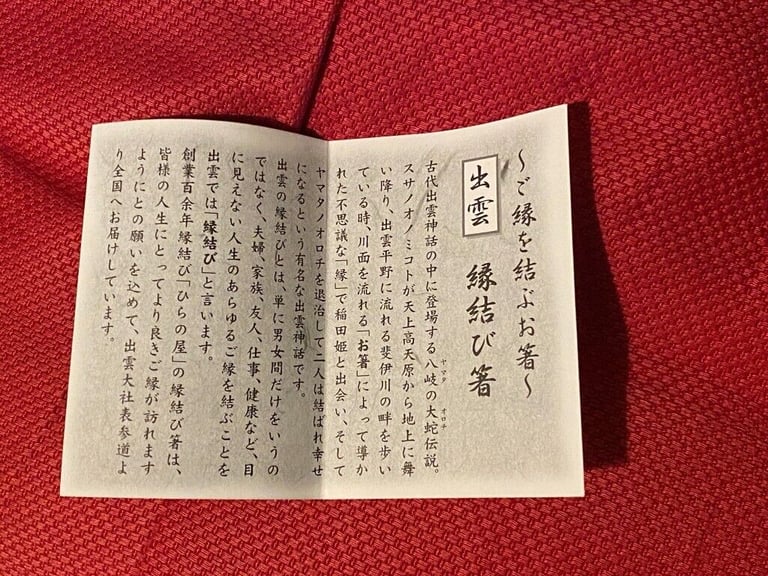 ～ご縁を結ぶお箸～
出雲 縁結び箸
古代出雲神話の中に登場する八岐の大蛇伝説。
ヤマタ オロチ
スサノオノミコトが天上高天原から地上に舞
い降り、出雲平野に流れる斐伊川の畔を歩い
ている時、川面を流れる「お箸」によって導か
れた不思議な「縁」で稲田姫と出会い、そして
ヤマタノオロチを退治して二人は結ばれ幸せ
になるという有名な出雲神話です。
出雲の縁結びとは、単に男女間だけをいうの
ではなく、夫婦、家族、友人、仕事、健康など、目
に見えない人生のあらゆるご縁を結ぶことを
出雲では「縁結び」と言います。
創業百余年縁結び「ひらの屋」の縁結び箸は、
皆様の人生にとってより良きご縁が訪れます
ようにとの願いを込めて、出雲大社表参道よ
り全国へお届けしています。